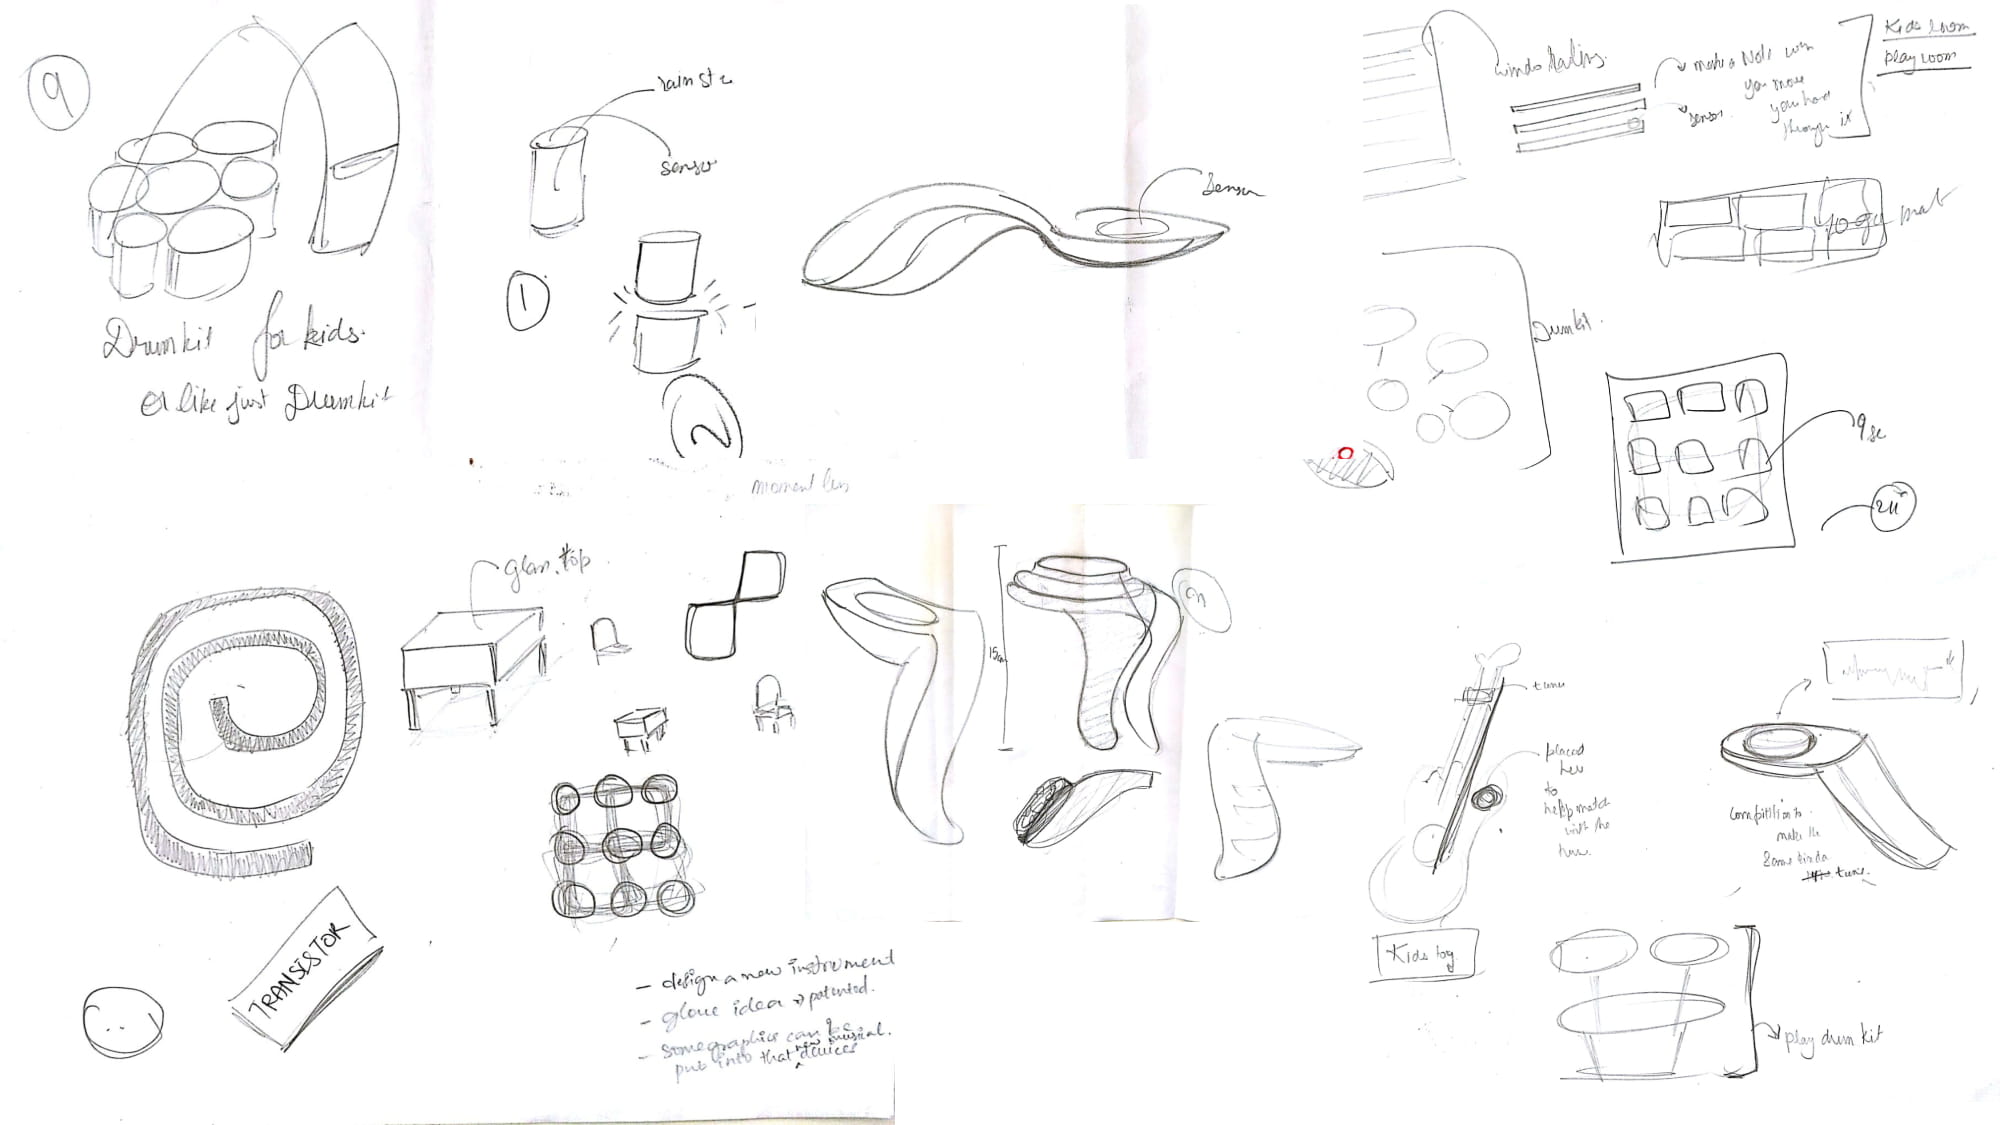 9
Drumkit for kids.
or like just Drumkit
sensor
1
2
Sensor
make a Note when
you move
your hand
through it
sensor
Kids room
Play room
Yoga mat
Drumkit.
glass top
15cm
TRANSISTOR
- design a new instrument
- glove idea → patented.
- Somographics can be
put into that new musical
devices
tuner
placed
here
to
help match
with the
tune.
Kids toy
competition to
make the
Same kinda
tune.
play drum kit